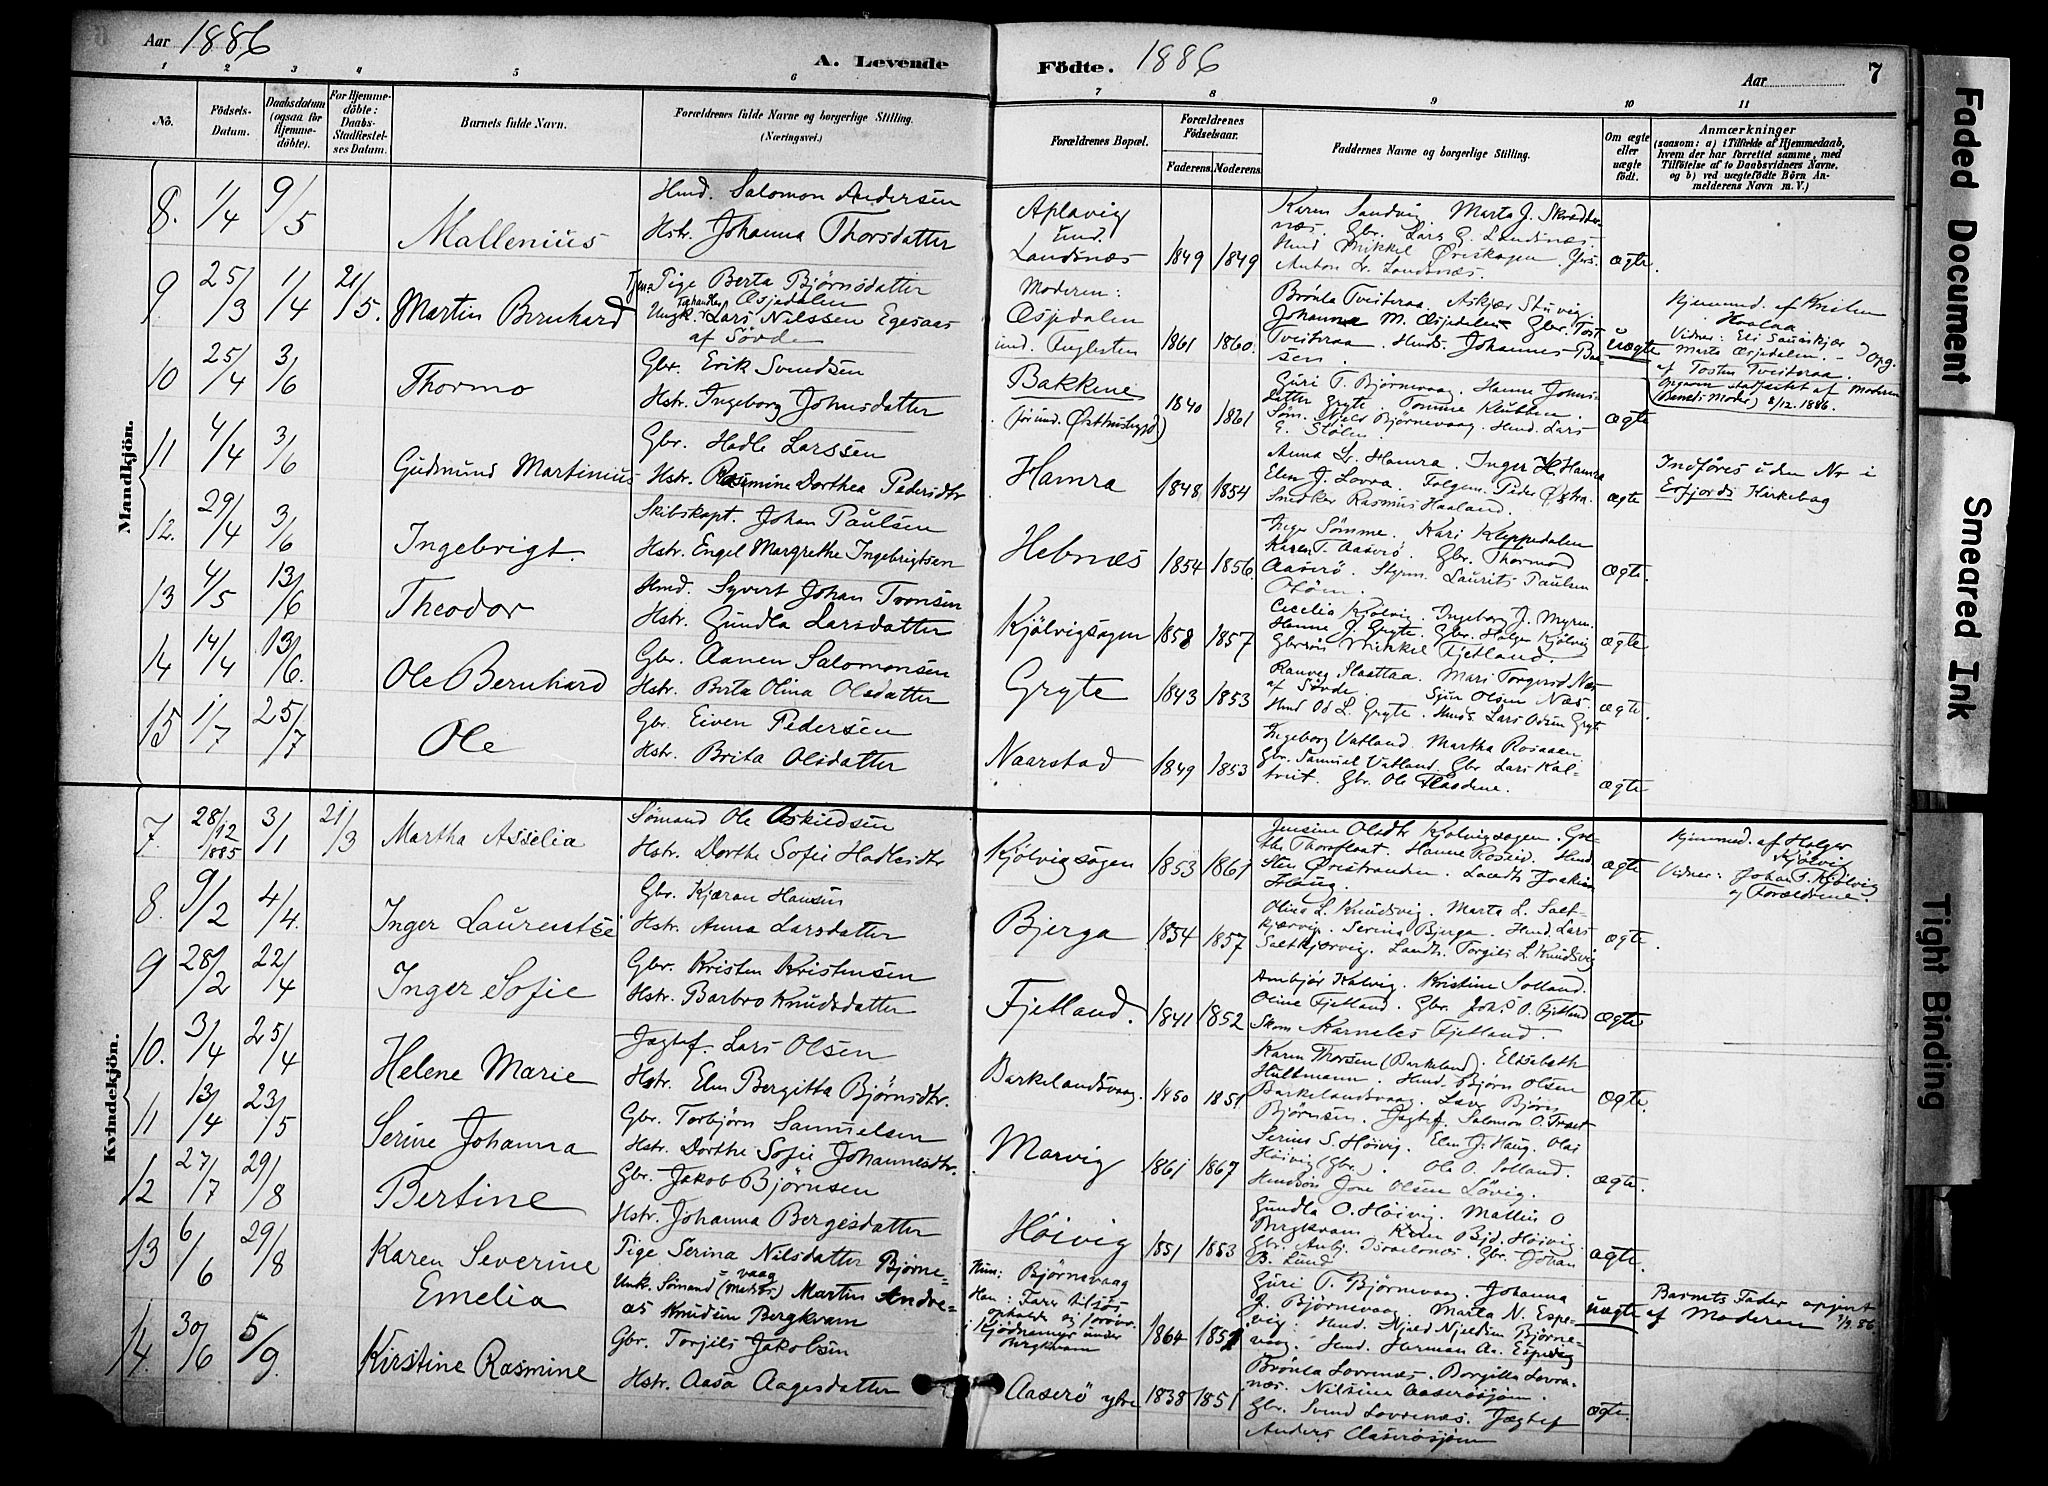 Aar 1886
A. Levende
Födte. 1886
Aar
7
1 2 3 4 5 6 7 8 9 10 11
No.
Födsels-Datum.
Daabsdatum (ogsaa for Hjemme-döbte).
For Hjemme-döbte: Daabs-Stadfæstel-ses Datum.
Barnets fulde Navn.
Forældrenes fulde Navne og borgerlige Stilling. (Næringsvei.)
Forældrenes Bopæl.
Forældrenes Födselsaar.
Faderens. Moderens.
Faddernes Navne og borgerlige Stilling.
Om ægte eller uægte födt.
Anmærkninger
(saasom: a) i Tilfælde af Hjemmedaab, hvem der har forrettet samme, med Tilföielse af to Daabsvidners Navne. og b) ved uægtefödte Börn An-melderens Navn m. V.)
Mandkjön.
8. 1/4 9/5 Mallenius
Hmd. Salomon Andersen
Hstr. Johanna Thorsdatter
Aplavig und. Landsnæs 1849 1849
Karen Sandvig. Marta J. Skrædder-
næs. Gbr. Lars G. Landsnæs.
ægte.
9. 25/3 1/4 21/5. Martin Bernhard
Tjen. Pige Berta Björnsdatter
Œspedalen
Ungk. Lars Nilssen Egesaas
af Sövde
Moderen:
Œspedalen
1861 1860.
Brönla Tveiteraa. Askjær Stuvig.
Johanna M. Œspedalen. Gbr. Tost
Tveiteraa. Hmds. Johannes Baa-
sen.
uægte
Hjemmed. af Kristen
Haalaa
Marta Œspedalen.
af Tosten Tveiteraa.
Opgaven stadfæstet af Moderen
(Barnets Moder) 8/12. 1886.
10 25/4 3/6 Thormo
Gbr. Erik Svendsen
Hstr. Ingeborg Johnsdatter
Bakkene
1840 1861
Guri T. Björnevaag. Hanne Johns-
datter Gryte. Tomine Klubben.
Björnevaag. Hmd. Lars
E. Stölen.
ægte
11 4/4 3/6 Gudmund Martinius
Gbr. Hadle Larssen
Hstr. Rasmine Dorthea Pedersdtr
Hamra 1848 1854
Anna Lr. Hamra. Inger H. Hamra
Elen J. Lovra. Peder Østra.
Smöker Rasmus Haaland.
ægte
Indföres uden No i
Erfjords Kirkebog
12. 29/4 3/6 Ingebrigt.
Skibskapt. Johan Paulsen
Hstr. Engel Margrethe Ingebrigtsen
Hebnæs 1854 1856.
Inger Sömme. Kari Kleppedalen
Karen T. Aaserö. Gbr. Thormod
Aaserö. Styrm. Laurits Paulsen
ægte.
13 4/5 13/6 Theodor
Hmd. Syvert Johan Tronsen
Hstr. Gundla Larsdatter
Kjölvigsagen 1858 1857
Cecelia Kjölvig. Ingeborg J. Myren.
Hanne J. Gryte. Gbr. Holge Kjölvig
Gbrsön Mikkel Fjetland.
ægte
14 14/4 13/6. Ole Bernhard
Gbr. Aanen Salomonsen
Hstr. Berta Olina Olsdatter
Gryte 1843 1853
Ranveg Slaattaa. Mari Torgersd. Næs
af Sövde. Sjur Olsen Næs.
Hmd Od L. Gryte. Hmds. Lars Odsen Gryte
ægte.
15 1/7 25/7 Ole
Gbr. Eiven Pedersen
Hstr. Brita Olsdatter
Naarstad 1849 1853
Ingeborg Vatland. Martha Rosaaen
Gbr. Samuel Vatland. Gbr Lars Kal-
tveit. Gbr. Ole Flaadene.
ægte
Kvindekjön.
7. 28/12 1885 3/1 21/3 Martha Asselia
Sömand Ole Askildsen
Hstr. Dorthe Sofie Hadlesdtr
Kjölvigsagen 1853 1861
Jensine Olsdtr Kjölvigsagen.
Thorsfloat. Hanne Roseid. Hmd.
Sten Öristranden. Landh. Joakim
Haug.
ægte
Hjemmed. af Holger
Kjölvig
Vidner: Johan T. Kjölvig
og Forældrene.
8. 9/2 4/4. Inger Laurentse
Gbr. Kjæran Hansen
Hstr. Anna Larsdatter
Bjerga 1854 1857
Olina L. Knudsvig. Marta L. Salt-
kjærvig. Serina Bjerga. Hmd. Lars
Saltkjærvig. Landh. Torgils L. Knudsvig
ægte.
9 28/2 22/4 Inger Sofie
Gbr. Kristen Kristensen
Hstr. Barbro Knudsdatter
Fjetland. 1841 1852
Ambjör Kalvig. Kristine Solland.
Oline Fjetland. Gbr. Johs O. Fjetland
Skom Karneles Fjetland.
ægte
10. 3/4 25/4 Helene Marie
Jagtef. Lars Olsen
Hstr. Elen Bergitta Björnsdtr.
Barkelandsvaag. 1850 1851
Karen Thorsen (Barkeland). Elisabeth
Hultmann. Hmd. Björn Olsen
Barkelandsvaag. Björn
Björnsen. Jagtef. Salomon O. Tveit
ægte.
11 13/4 23/5 Serine Johanna
Gbr. Torbjörn Samuelsen
Hstr. Dorthe Sofie Johannesdtr.
Marvig 1861 1867
Serine S. Höivig. Elen J. Haug. Olai
Höivig (Gbr.). Ole O. Solland.
Hmdsön Jone Olsen Lövig.
ægte.
12 27/7 29/8 Bertine
Gbr. Jakob Björnsen
Hstr. Johanna Bergesdatter
Höivig 1851 1853
Gundla O. Höivig. Mallin O
Bergkvam. Karen Bjd. Höivig.
Gbr. Anbj. Israelsnes. Gbr. Johan
B. Lund
ægte.
13 6/6 29/8 Karen Severine Emelia
Pige Serina Nilsdatter Björne-
vaag
Unk. Sömand (Matros) Martin Andre-
as Knudsen Bergkvam
Hun: Björnevaag
Han: Farer tilsjös
under Bergkvam
1864 1857
Guri T. Björnevaag. Johanna
J. Björnevaag. Marta N. Espe-
vig. Hmd. Njeld Njeldsen Björne-
vaag. Hmd. Herman A. Espevig
uægte
Barnets Fader opgivet
af Moderen 7/9. 86
14. 30/6 5/9. Kirstine Rasmine
Gbr. Torjels Jakobsen
Hstr. Aasa Aagesdatter
Aaserö ytre 1838 1851
Brönla Lovrenæs. Borgilla Lovre-
næs. Nilsine Aaserösjöen.
Gbr. Svend Lovrenæs. Jægtef
Anders Aaserösjöen
ægte.
Faded Document
Smeared Ink
Tight Binding